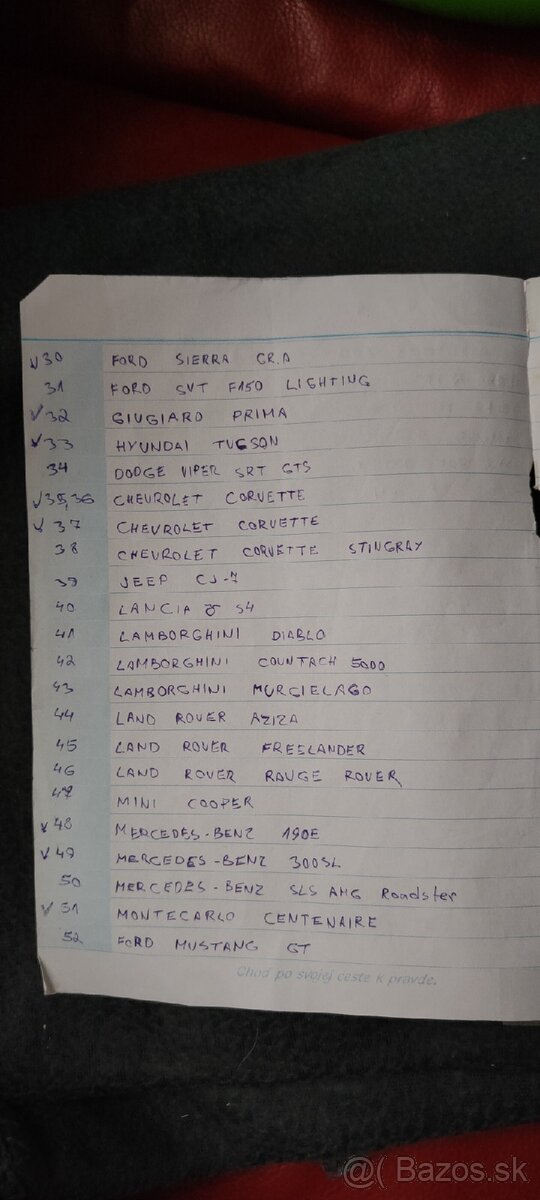 ✓30 FORD SIERRA GR.A
31 FORD SVT F150 LIGHTING
✓32 GIUGIARO PRIMA
✓33 HYUNDAI TUCSON
34 DODGE VIPER SRT GTS
✓35,36 CHEVROLET CORVETTE
✓37 CHEVROLET CORVETTE
38 CHEVROLET CORVETTE STINGRAY
39 JEEP CJ-7
40 LANCIA S4
41 LAMBORGHINI DIABLO
42 LAMBORGHINI COUNTACH 5000
43 LAMBORGHINI MURCIELAGO
44 LAND ROVER AZIZA
45 LAND ROVER FREELANDER
46 LAND ROVER RANGE ROVER
47 MINI COOPER
✓48 MERCEDES-BENZ 190E
✓49 MERCEDES-BENZ 300SL
50 MERCEDES-BENZ SLS AMG Roadster
✓51 MONTECARLO CENTENAIRE
52 FORD MUSTANG GT
Choď po svojej ceste k pravde.
@( Bazos.sk